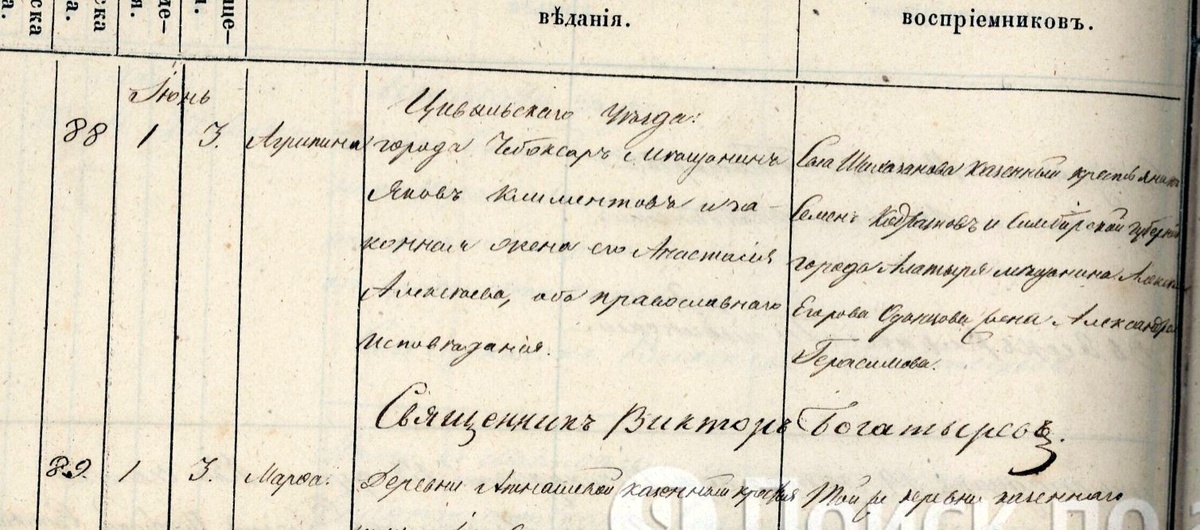 вѣданія.
воспріемниковъ.
Іюнь
Цивильскаго уѣзда:
88 1 3. Агрипина
города Чебоксаръ мѣщанинъ
Яковъ Климентовъ и за-
конная жена его Анастасія
Алексѣева, оба православнаго
исповѣданія.
Села казенный крестьянинъ
Семенъ и Симбирской губерніи
города Алатыря мѣщанина
Егорова Одонцова жена Александра
Герасимова.
Священникъ Викторъ Богатыревъ.
89. 1 3. Марѳа.
Деревни казенный
Той же деревни казеннаго
Поиск по